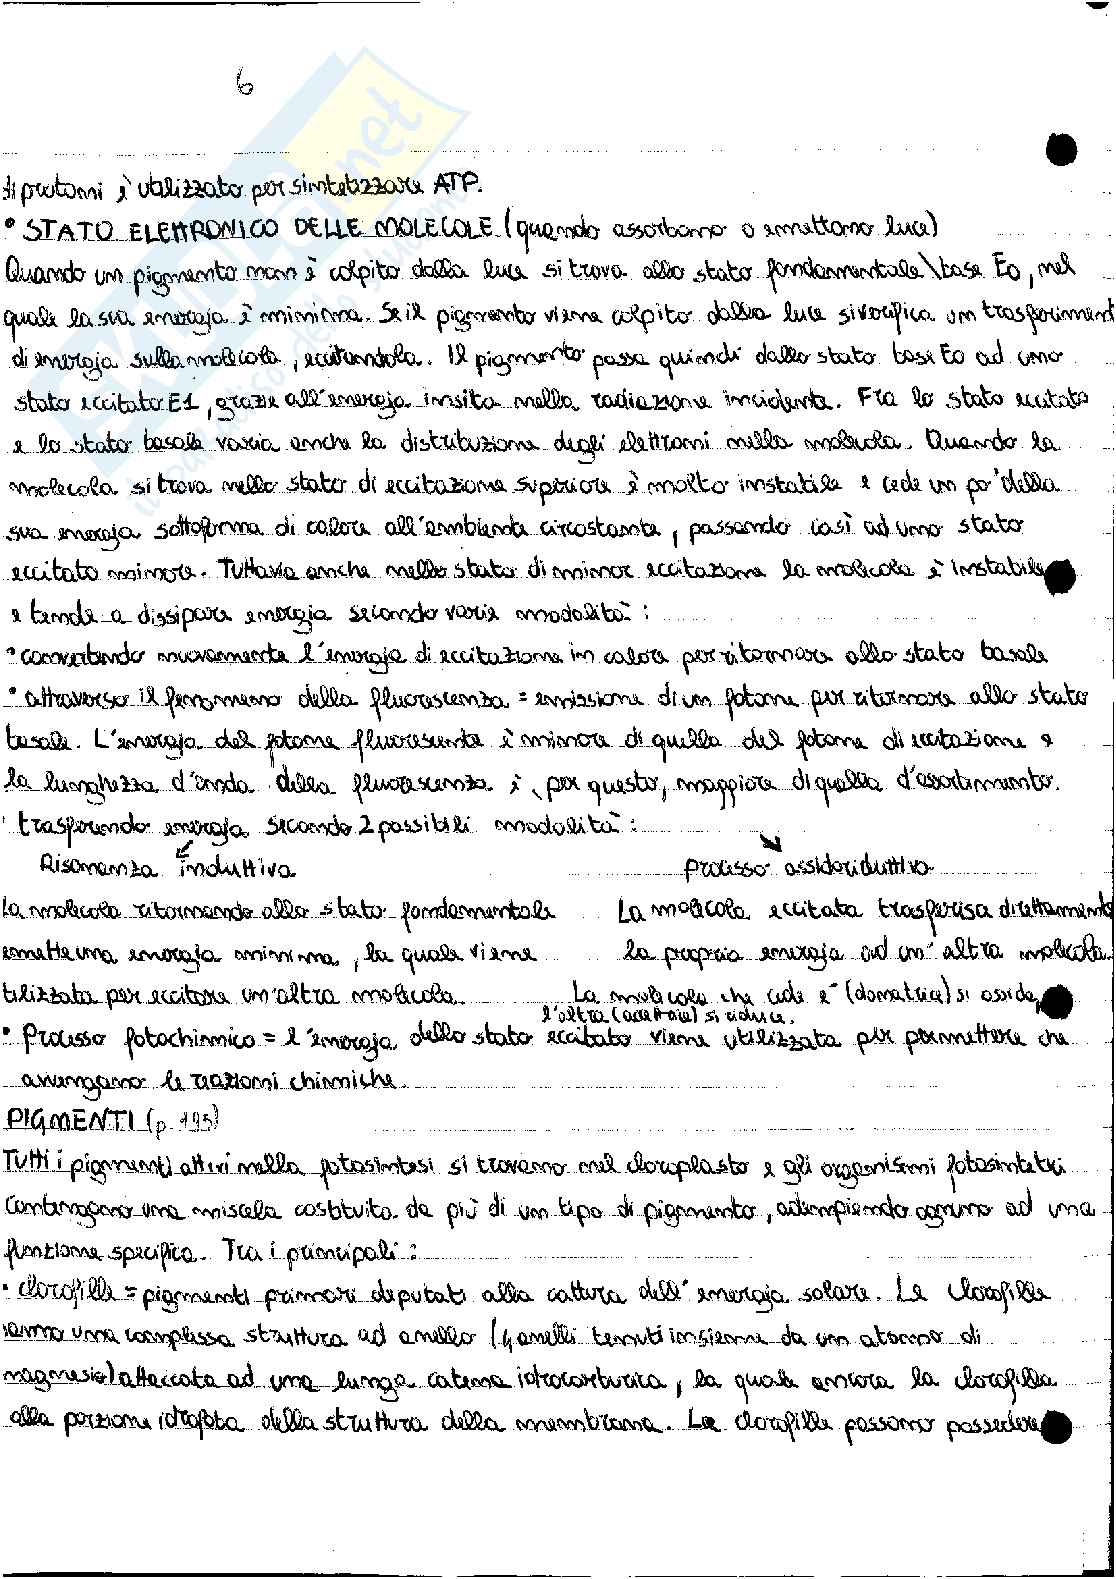 6
di protoni è utilizzato per sintetizzare ATP.
• STATO ELETTRONICO DELLE MOLECOLE (quando assorbono o emettono luce)
Quando un pigmento non è colpito dalla luce si trova allo stato fondamentale\base E0, nel
quale la sua energia è minima. Se il pigmento viene colpito dalla luce si verifica un trasferiment
di energia sulla molecola, eccitandola. Il pigmento passa quindi dallo stato base E0 ad uno
stato eccitato E1, grazie all'energia insita nella radiazione incidente. Fra lo stato eccitato
e lo stato basale varia anche la distribuzione degli elettroni nella molecola. Quando la
molecola si trova nello stato di eccitazione superiore è molto instabile e cede un po' della
sua energia sottoforma di calore all'ambiente circostante, passando così ad uno stato
eccitato minore. Tuttavia anche nello stato di minor eccitazione la molecola è instabile
e tende a dissipare energia secondo varie modalità:
• convertendo nuovamente l'energia di eccitazione in calore per ritornare allo stato basale
• attraverso il fenomeno della fluorescenza = emissione di un fotone per ritornare allo stato
basale. L'energia del fotone fluorescente è minore di quella del fotone di eccitazione e
la lunghezza d'onda della fluorescenza è, per questo, maggiore di quella d'assorbimento.
• trasferendo energia secondo 2 possibili modalità:
Risonanza induttiva
processo ossidoriduttivo
la molecola ritornando allo stato fondamentale
La molecola eccitata trasferisce direttamente
emette una energia minima, la quale viene
la propria energia ad un'altra molecola.
tilizzata per eccitare un'altra molecola.
La molecola che cede e⁻ (donatrice) si ossida,
l'altra (accettore) si riduce.
• Processo fotochimico = l'energia dello stato eccitato viene utilizzata per permettere che
avvengano le reazioni chimiche.
PIGMENTI (p. 195)
Tutti i pigmenti attivi nella fotosintesi si trovano nel cloroplasto e gli organismi fotosintetici
contengono una miscela costituita da più di un tipo di pigmento, adempiendo ognuno ad una
funzione specifica. Tra i principali:
• clorofille = pigmenti primari deputati alla cattura dell'energia solare. Le clorofille
anno una complessa struttura ad anello (4 anelli tenuti insieme da un atomo di
magnesio) attaccata ad una lunga catena idrocarburica, la quale ancora la clorofilla
alla porzione idrofoba della struttura della membrana. Le clorofille possono possedere